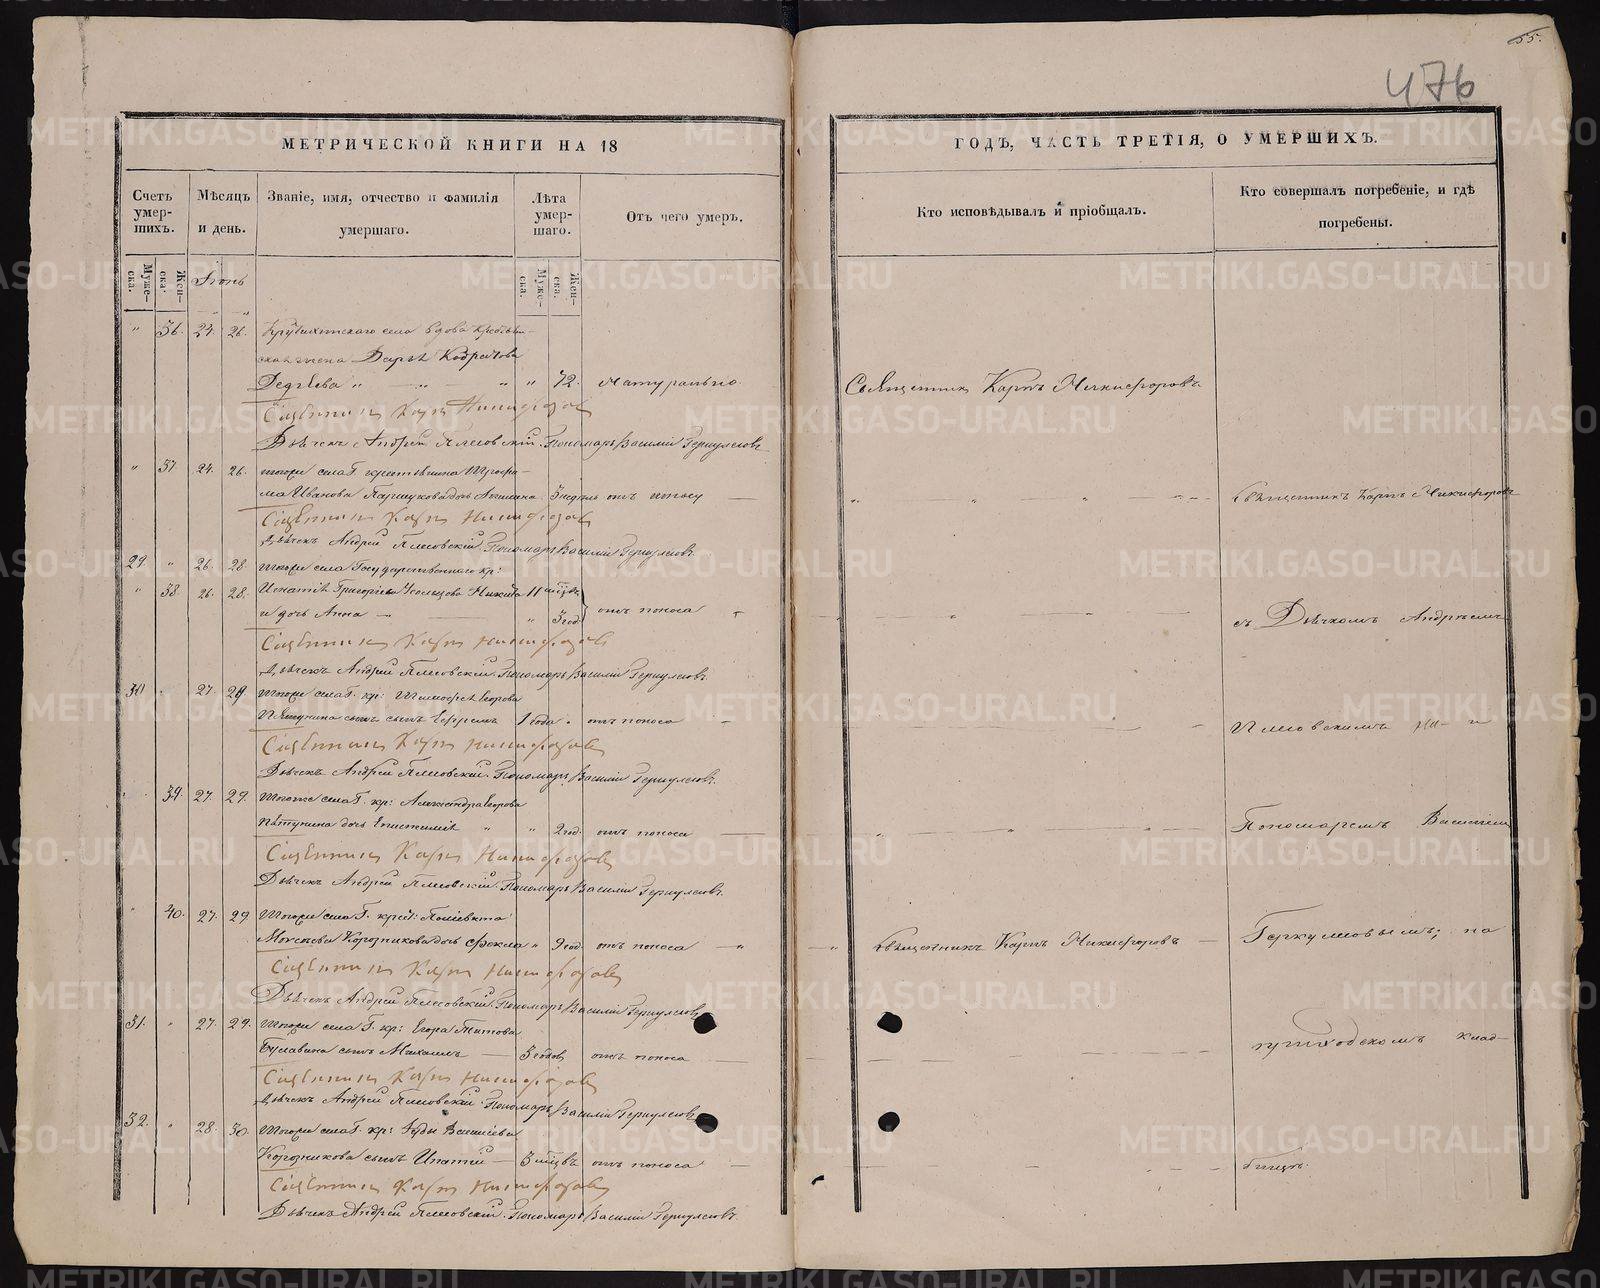 55.
476
МЕТРИЧЕСКОЙ КНИГИ НА 18
ГОДЪ, ЧАСТЬ ТРЕТІЯ, О УМЕРШИХЪ.
Счетъ умер-шихъ.
Мѣсяцъ и день.
Званіе, имя, отчество и фамилія умершаго.
Лѣта умер-шаго.
Отъ чего умеръ.
Кто исповѣдывалъ и пріобщалъ.
Кто совершалъ погребеніе, и гдѣ погребены.
Муже-ска.
Жен-ска.
Муже-ска.
Жен-ска.
" 36. 24. 26. села вдова
Дарья
" " " 72. натурально. Священник Карпъ Никифоровъ
Священник Карп Никифоров
Дьячекъ Андрей Плесовскій. Пономарь Василій Геркулесовъ.
" 37. 24. 26. тогоже села Г. крестьянина
Иванова дочь 3 недель отъ поносу Священник Карпъ Никифоровъ
Священник Карп Никифоров
Дьячекъ Андрей Плесовскій. Пономарь Василій Геркулесовъ.
29. " 26. 28. тогоже села Государственного кр:
" 38. 26. 28. Игнатія Григорьева Усольцова Никита 11
и дочь Анна " 3 год. отъ поноса съ Дьячкомъ Андреемъ
Священник Карп Никифоров
Дьячекъ Андрей Плесовскій. Пономарь Василій Геркулесовъ.
30. 27. 29. тогоже села Г. кр: Тимофея Егорова
сынъ Ефремъ 1 года " отъ поноса Плесовскимъ и
Священник Карп Никифоров
Дьячекъ Андрей Плесовскій. Пономарь Василій Геркулесовъ.
39. 27. 29. тогоже села Г. кр: Александра Егорова
дочь Епистимія " " 2 год. отъ поноса Пономаремъ Василіемъ
Священник Карп Никифоров
Дьячекъ Андрей Плесовскій. Пономарь Василій Геркулесовъ.
40. 27. 29. тогоже села Г. крест: Поліевкта
Моисеева Коготникова дочь Фекла " 9 год. отъ поноса " " Священникъ Карпъ Никифоровъ Геркулесовымъ; на
Священник Карп Никифоров
Дьячекъ Андрей Плесовскій. Пономарь Василій Геркулесовъ
31. " 27. 29. тогоже села Г. кр: Егора Титова
Булавина сынъ Михаилъ 3 годов отъ поноса приходскомъ клад-
Священник Карп Никифоров
Дьячекъ Андрей Плесовскій. Пономарь Василій Геркулесовъ
32. " 28. 30. тогоже села Г. кр: Іуды Васильева
сынъ Ипатій 3 мѣцъ отъ поноса бищѣ.
Священник Карп Никифоров
Дьячекъ Андрей Плесовскій. Пономарь Василій Геркулесовъ.
METRIKI.GASO-URAL.RU